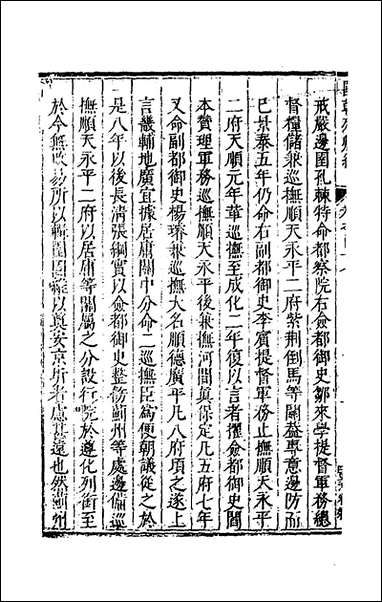 戒嚴邊圉孔棘特命都察院右僉都御史鄒來學提督軍務總
督糧儲兼巡撫順天永平二府紫荆倒馬等關蓋專意邊防而
已景泰五年仍命右副都御史李賓提督軍務止撫順天永平
二府天順元年革巡撫至成化二年復以言者擢僉都御史閻
本贊理軍務巡撫順天永平後兼撫河間眞保定凡五府七年
又命副都御史楊璿兼巡撫大名順德廣平凡八府項之遂上
言畿輔地廣宜據居庸關中分命二巡撫臣爲便朝議從之於
是八年以後長淸張綱實以僉都御史整飭薊州等處邊備巡
撫順天永平二府以居庸等關屬之分設行院於遵化列銜至
於今無改易所以輯固以奠安京所者慮甚遠也然薊州